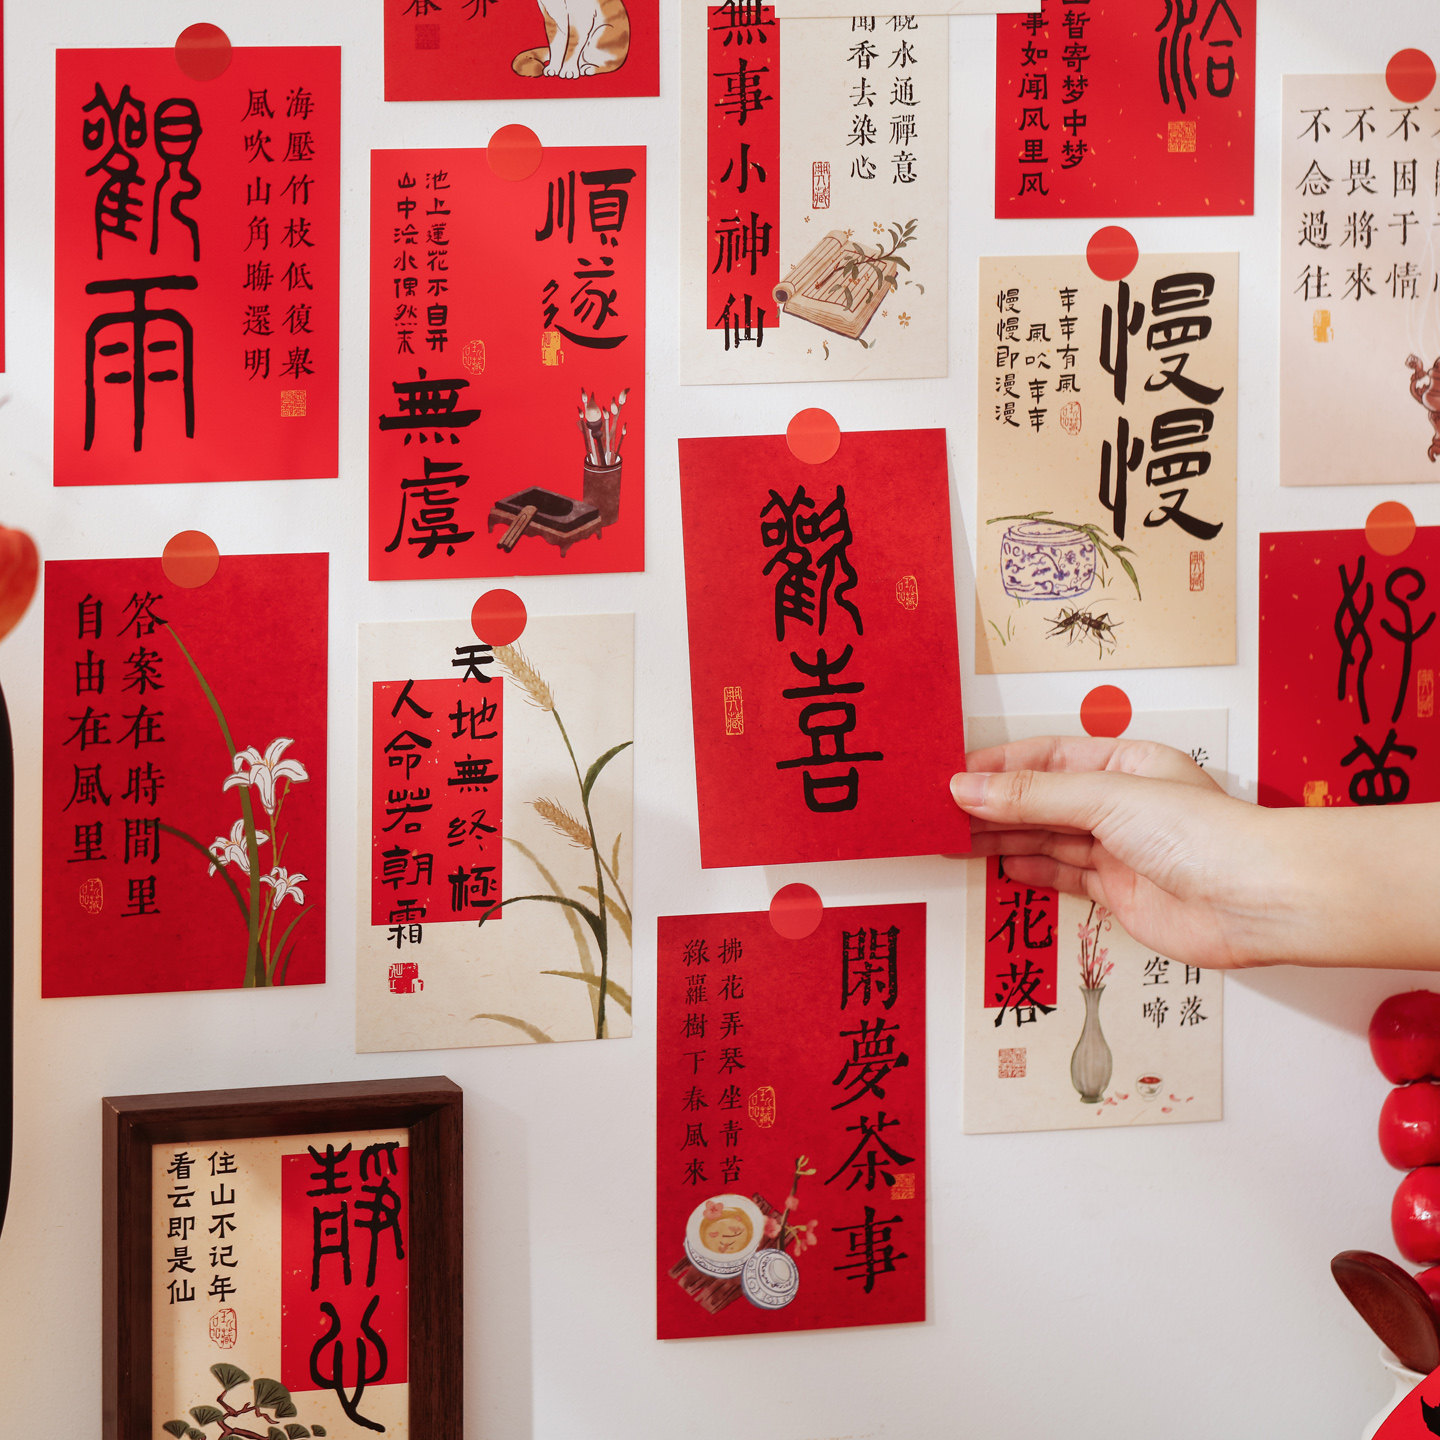 觀雨
海壓竹枝低復舉
風吹山角晦還明
春
順遂
無虞
池上蓮花不自开
山中流水偶然来
無事小神仙
觀水通禪意
聞香去染心
洽
暂寄梦中梦
事如闻风里风
慢慢
年年有風
風吹年年
慢慢即漫漫
不困于情
不畏將來
不念過往
答案在時間里
自由在風里
天地無終極
人命若朝霜
歡喜
好
花落
落
空啼
閑夢茶事
拂花弄琴坐青苔
綠蘿樹下春風來
靜心
住山不记年
看云即是仙